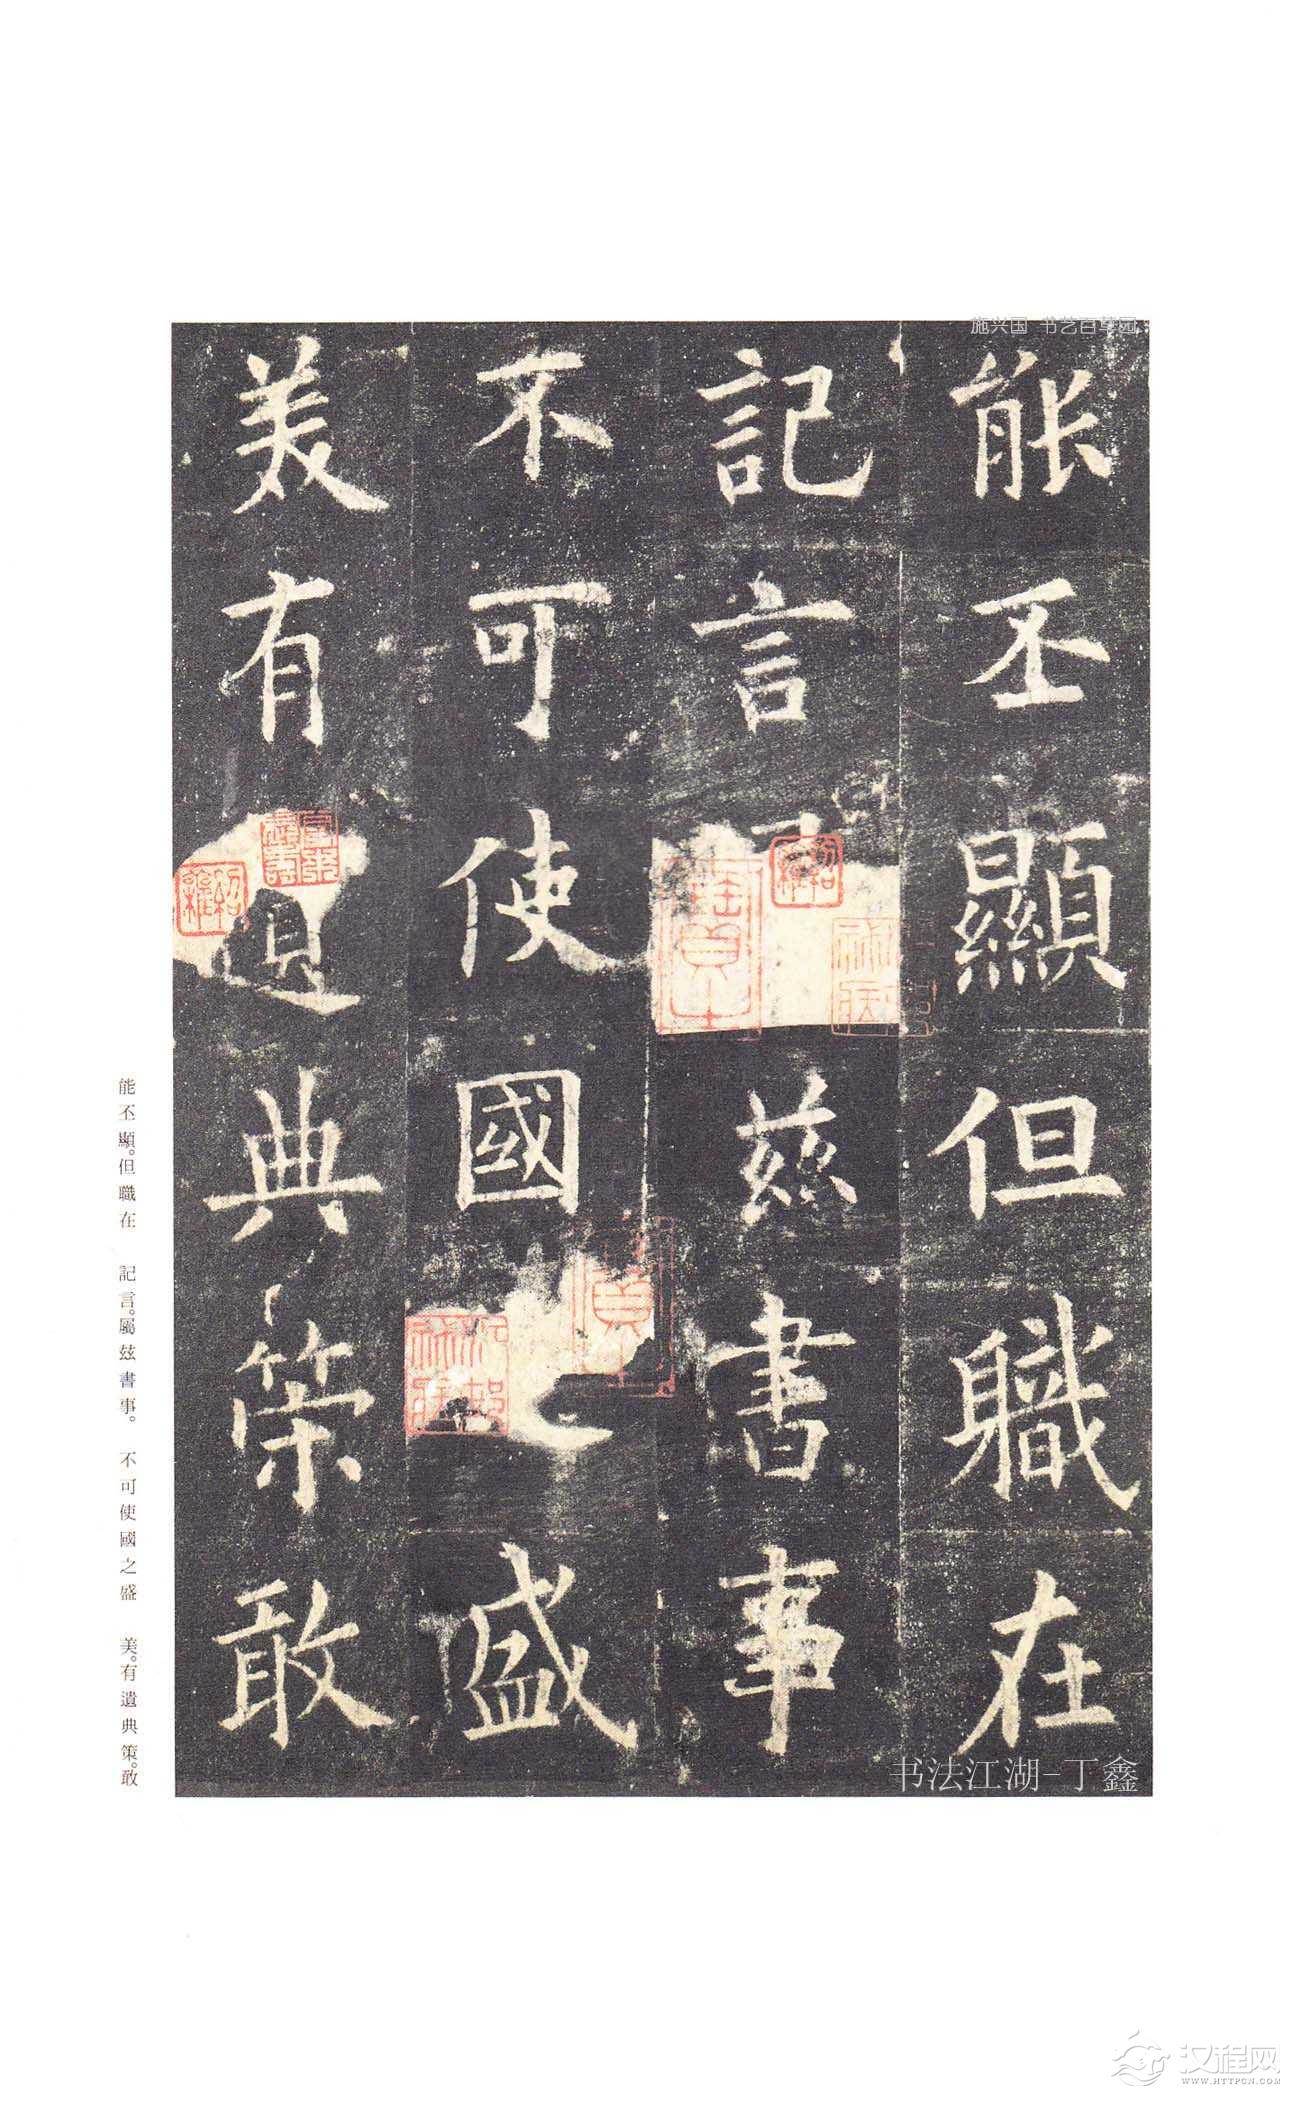 施兴国 书艺百草园
能丕顯但職在
記言兹書事
不可使國之盛
美有遺典策敢
能丕顯。但職在 記言。屬兹書事。 不可使國之盛 美。有遺典策。敢
书法江湖-丁鑫
汉程网
WWW.HTTPCN.COM